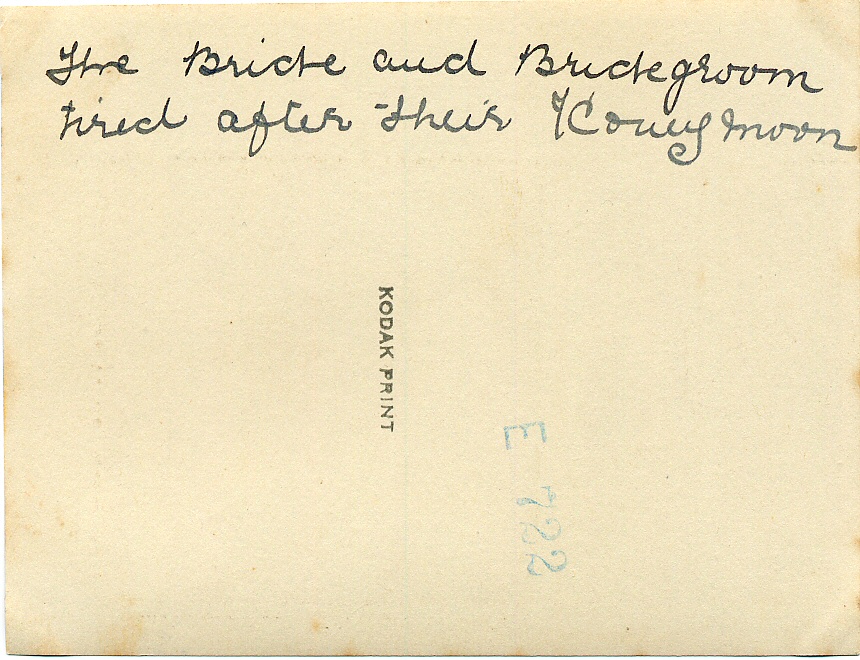 The Bride and Bridegroom
tired after their Honeymoon
KODAK PRINT
E 722